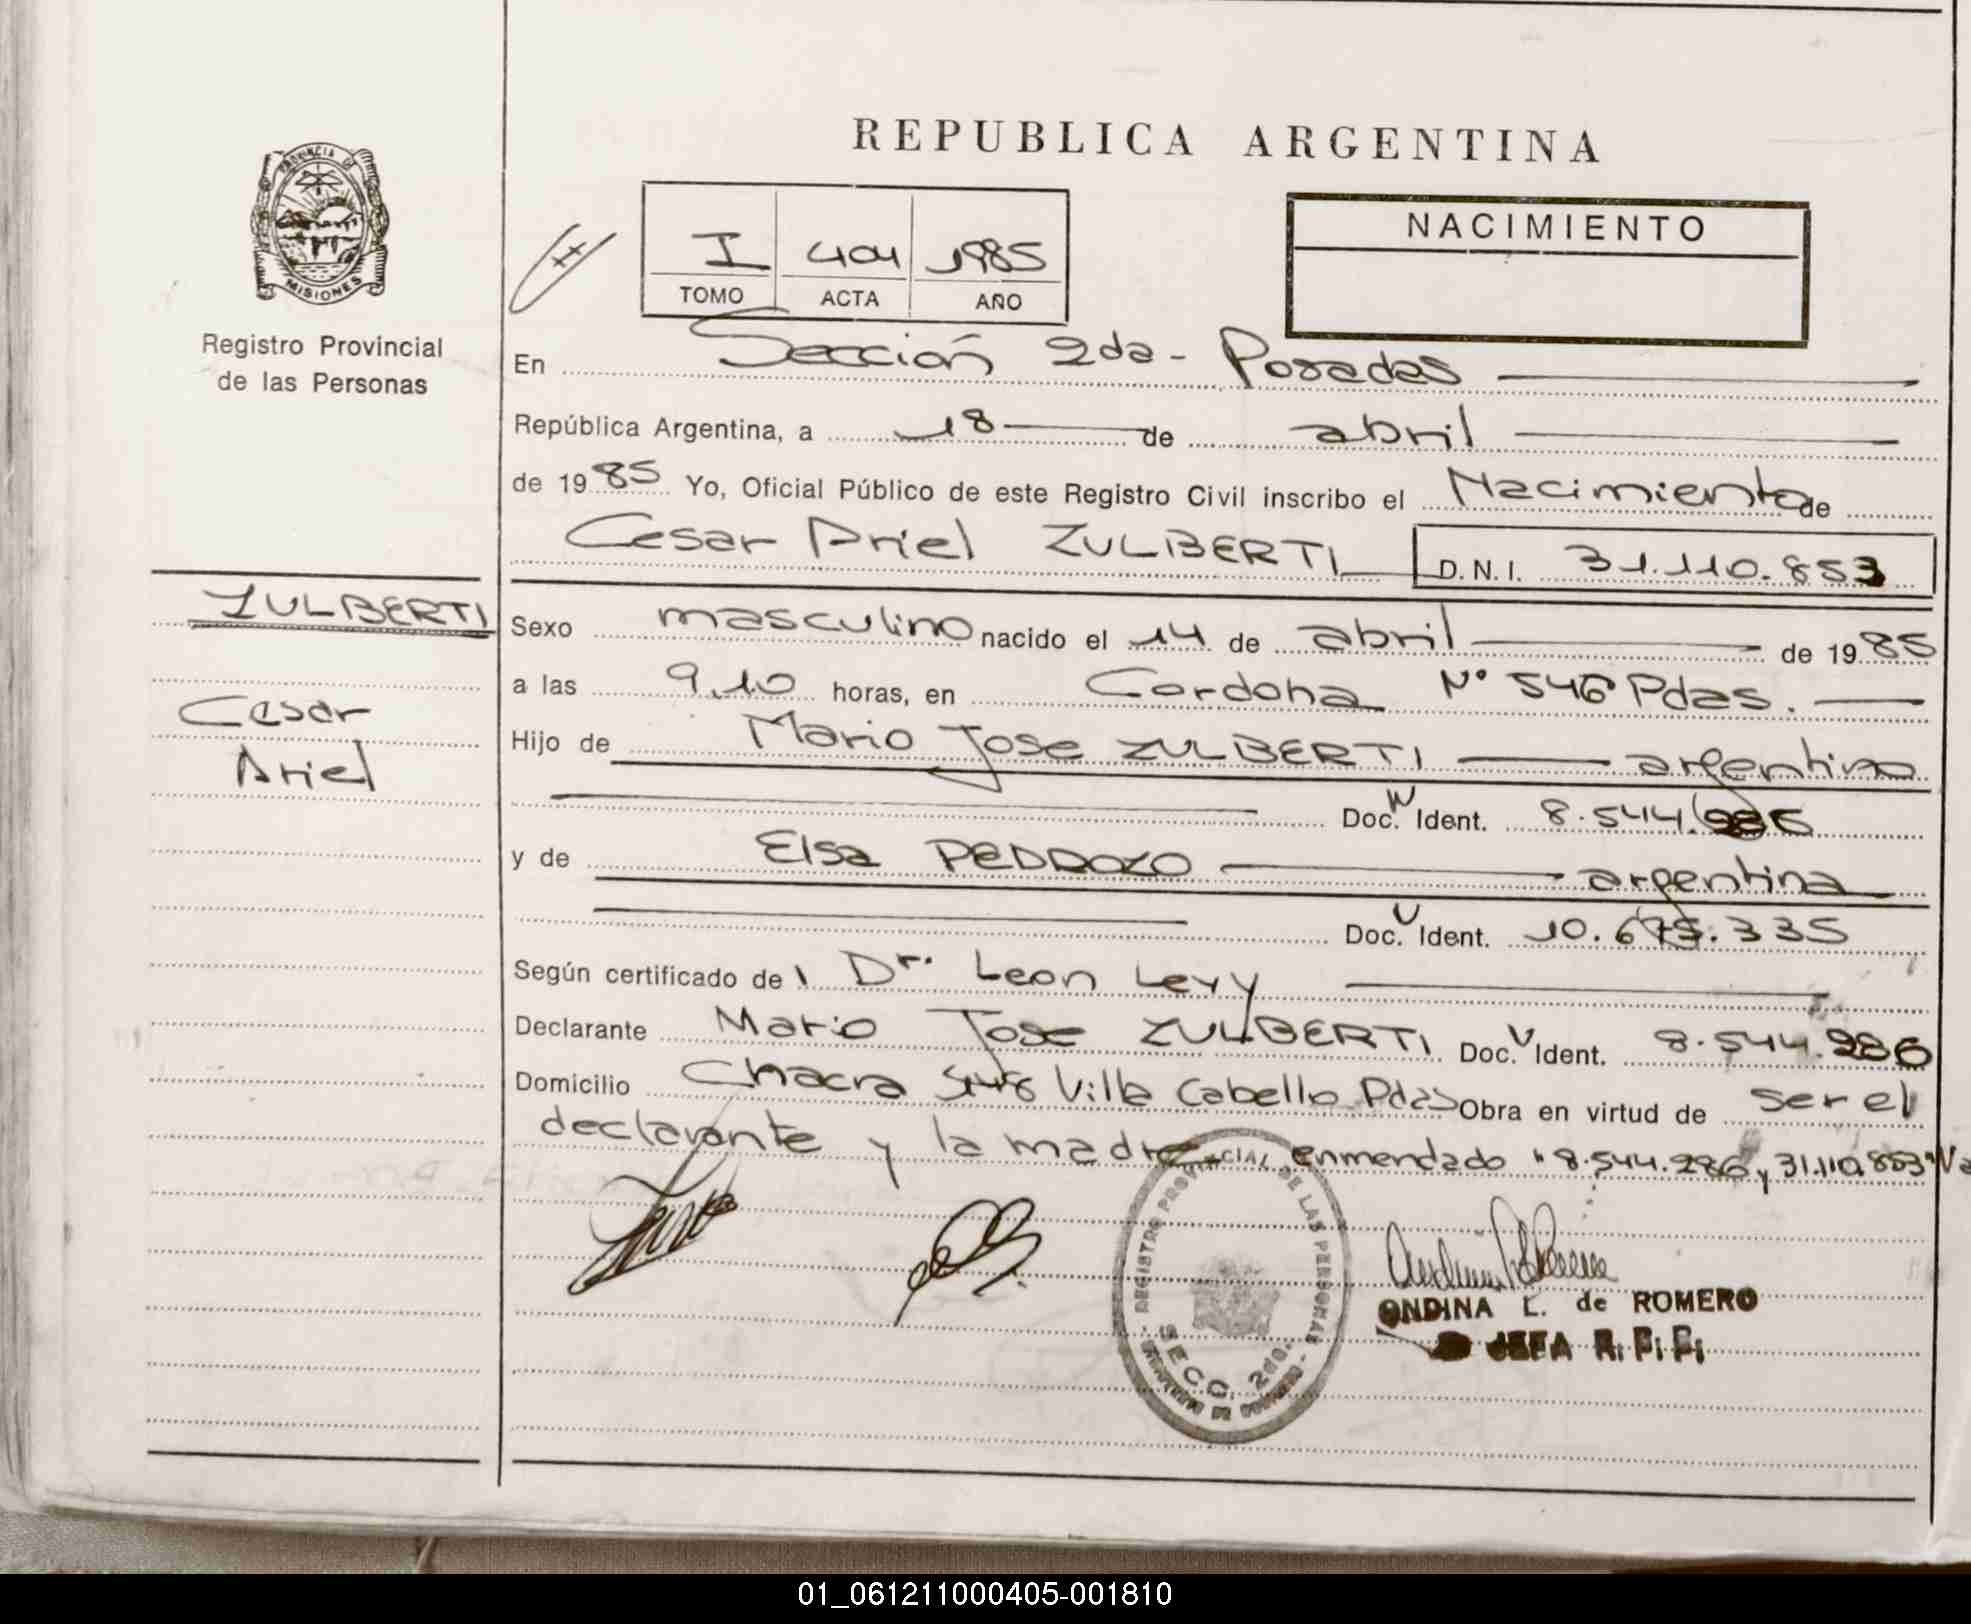 REPUBLICA ARGENTINA
PROVINCIA DE
MISIONES
Registro Provincial
de las Personas
I 404 1985
TOMO ACTA AÑO
NACIMIENTO
En Sección 2da - Posadas
República Argentina, a 18 de abril
de 1985 Yo, Oficial Público de este Registro Civil inscribo el Nacimiento de
Cesar Ariel ZULBERTI D.N.I. 31.110.853
ZULBERTI
Cesar
Ariel
Sexo masculino nacido el 14 de abril de 1985
a las 9,10 horas, en Cordoba N° 546 Pdas.
Hijo de Mario Jose ZULBERTI argentino
Doc. Ident. 8.544.286
y de Elsa PEDROZO argentina
Doc. Ident. 10.675.335
Según certificado de l Dr. Leon Levy
Declarante Mario Jose ZULBERTI Doc. Ident. 8.544.286
Domicilio Chacra Villa Cabello Pdas Obra en virtud de ser el
declarante y la madre enmendado "8.544.286 y 31.110.853" Va
REGISTRO PROVINCIAL DE LAS PERSONAS
SECC. 2da.
ONDINA L. de ROMERO
JEFA R. P. P.
01_061211000405-001810